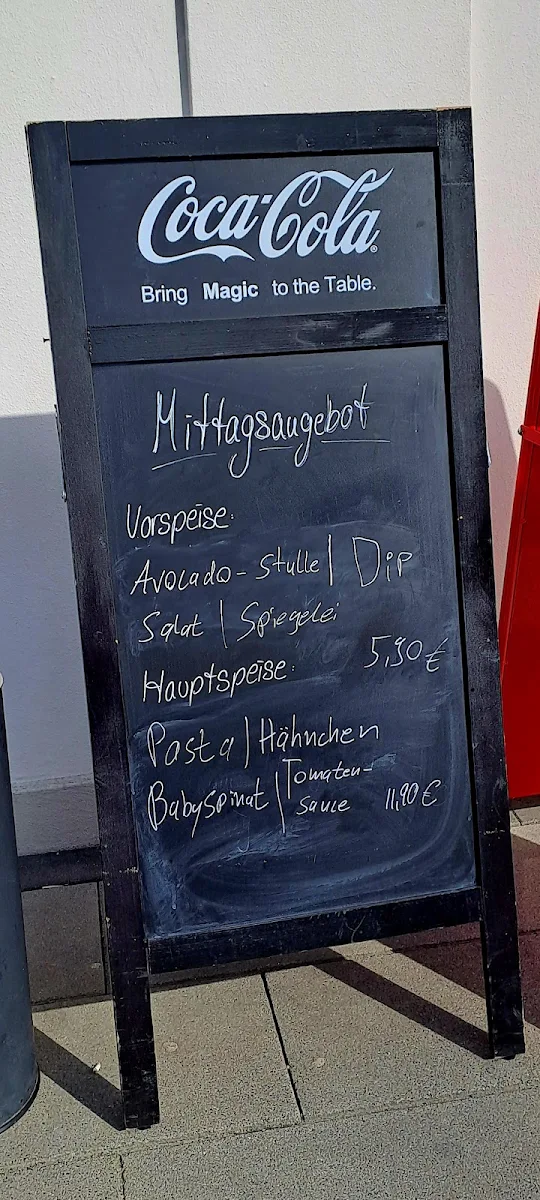 Coca-Cola®
Bring Magic to the Table.
Mittagsangebot
Vorspeise:
Avocado-Stulle | Dip
Salat | Spiegelei
5,90 €
Hauptspeise:
Pasta | Hähnchen
Babyspinat | Tomaten-
sauce 11,90 €